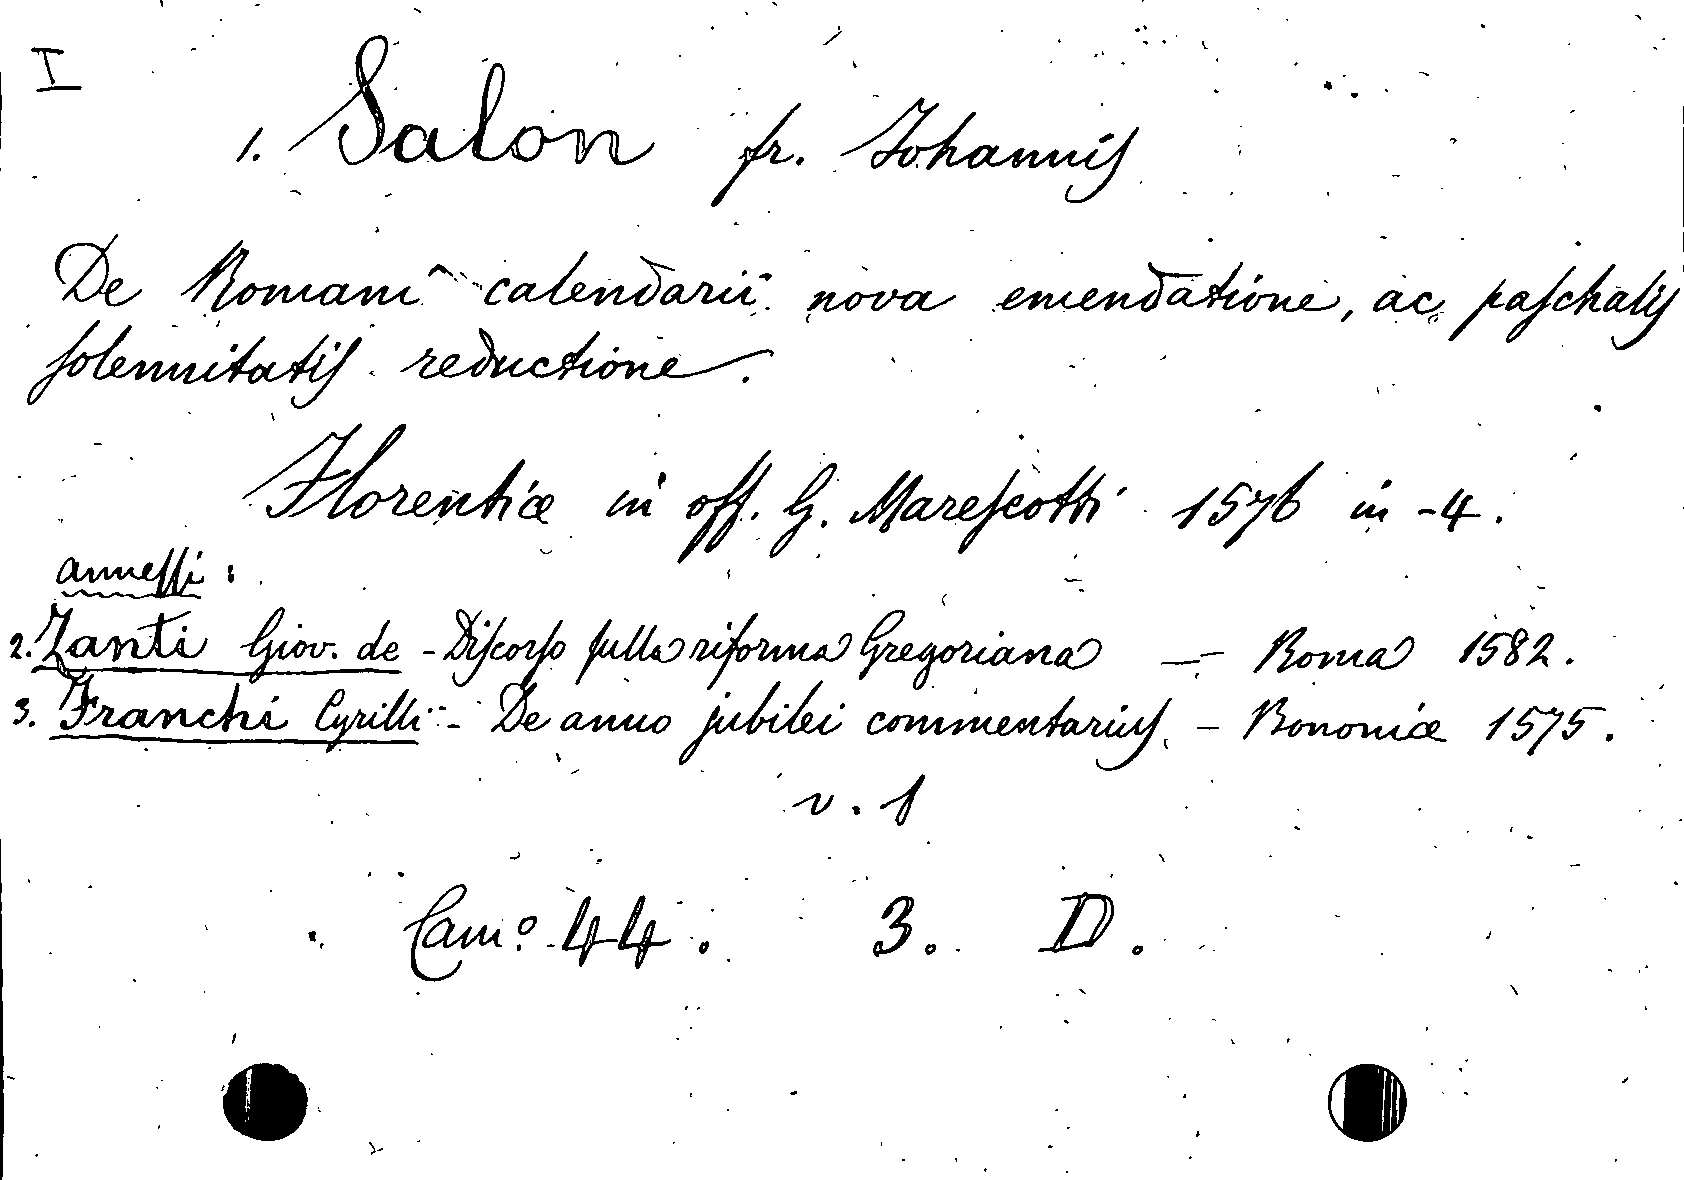 I
1. Salon fr. Iohannis
De Romani calendarii nova emendatione, ac paschalis
solennitatis reductione.
Florentiæ in off. G. Marescotti 1576 in-4.
annessi:
2. Zanti Giov. de - Discorso sulla riforma Gregoriana — Roma 1582.
3. Franchi Cyrilli - De anno jubilei commentarius. - Bononiæ 1575.
v. 1
Camº. 44. 3. D.